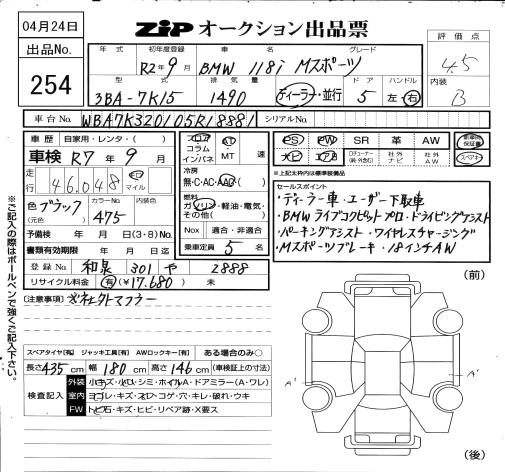 04月24日
ZIP オークション出品票
評価点
4.5
出品No.
254
年式
初年度登録
車名
グレード
R2年9月 BMW 118i Mスポーツ
内装
B
型式
排気量
ドア
ハンドル
3BA-7K15 1490 ディーラー・並行 5 左・右
車台No. WBA7K320105R18881 シリアルNo.
車歴 自家用・レンタ・( )
車検 R7年9月
走行 46,048 km マイル
色 ブラック カラーNo. 475
(元色)
予備検 年 月 日(3・8)No.
書類有効期限 年 月 日迄
登録No. 和泉 301 や 2888
リサイクル料金 有(¥17,680) 未
フロア コラム インパネ
AT MT 速
冷房
無・C・AC・AAC・( )
燃料
ガソリン・軽油・電気・その他( )
Nox 適合・非適合
乗車定員 5 名
PS PW SR 革 AW
ナビ エアB 社外ナビ 社外AW
新車時保証書
スペアキー
※上記太枠内は標準装備品
セールスポイント
・ディーラー車・ユーザー下取車
・BMWライブコクピットプロ・ドライビングアシスト
・パーキングアシスト・ワイヤレスチャージング
・Mスポーツブレーキ・18インチAW
(注意事項)
スペアタイヤ[有] ジャッキ工具[有] AWロックキー[有] ある場合のみ〇
長さ435cm 幅180cm 高さ146cm (車検証上の寸法)
検査記入
外装 小キズ・小凹・シミ・ホイルA・ドアミラー(A・ワレ)
室内 ヨゴレ・キズ・スレ・コゲ・穴・キレ・破れ・ウキ
FW トビ石・キズ・ヒビ・リペア跡・X要ス
(前)
A' A'
(後)
※ご記入の際はボールペンで強くご記入下さい。